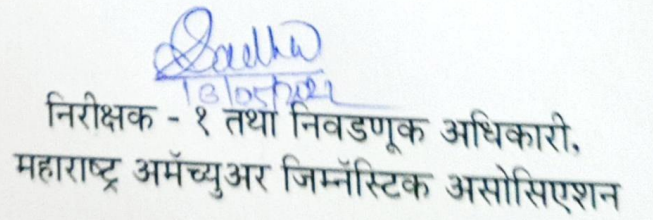 निरीक्षक - १ तथा निवडणूक अधिकारी,
महाराष्ट्र अमॅच्युअर जिम्नॅस्टिक असोसिएशन